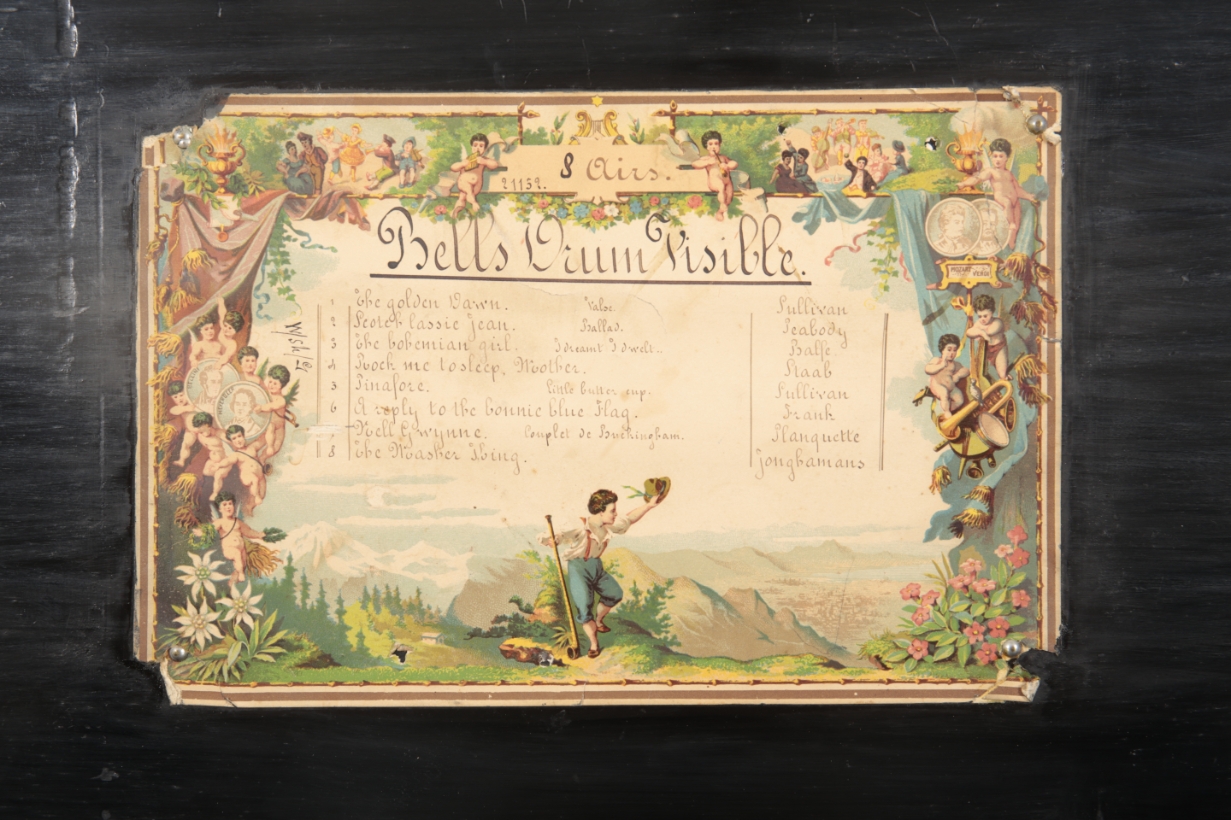 8 Airs.
21132.
Bells Drum Visible.
1 The golden Dawn. Valse. Sullivan
2 Scotch lassie jean. Ballad. Peabody
3 The bohemian girl. I dreamt I dwelt.. Balfe.
4 Rock me to sleep, Mother. Staab
5 Pinafore. Little butter cup. Sullivan
6 A reply to the bonnie blue Flag. Frank
7 Nell Gwynne. Couplet de Buckingham. Planquette
8 The Masher King. Jonghamans
MOZART
VERDI